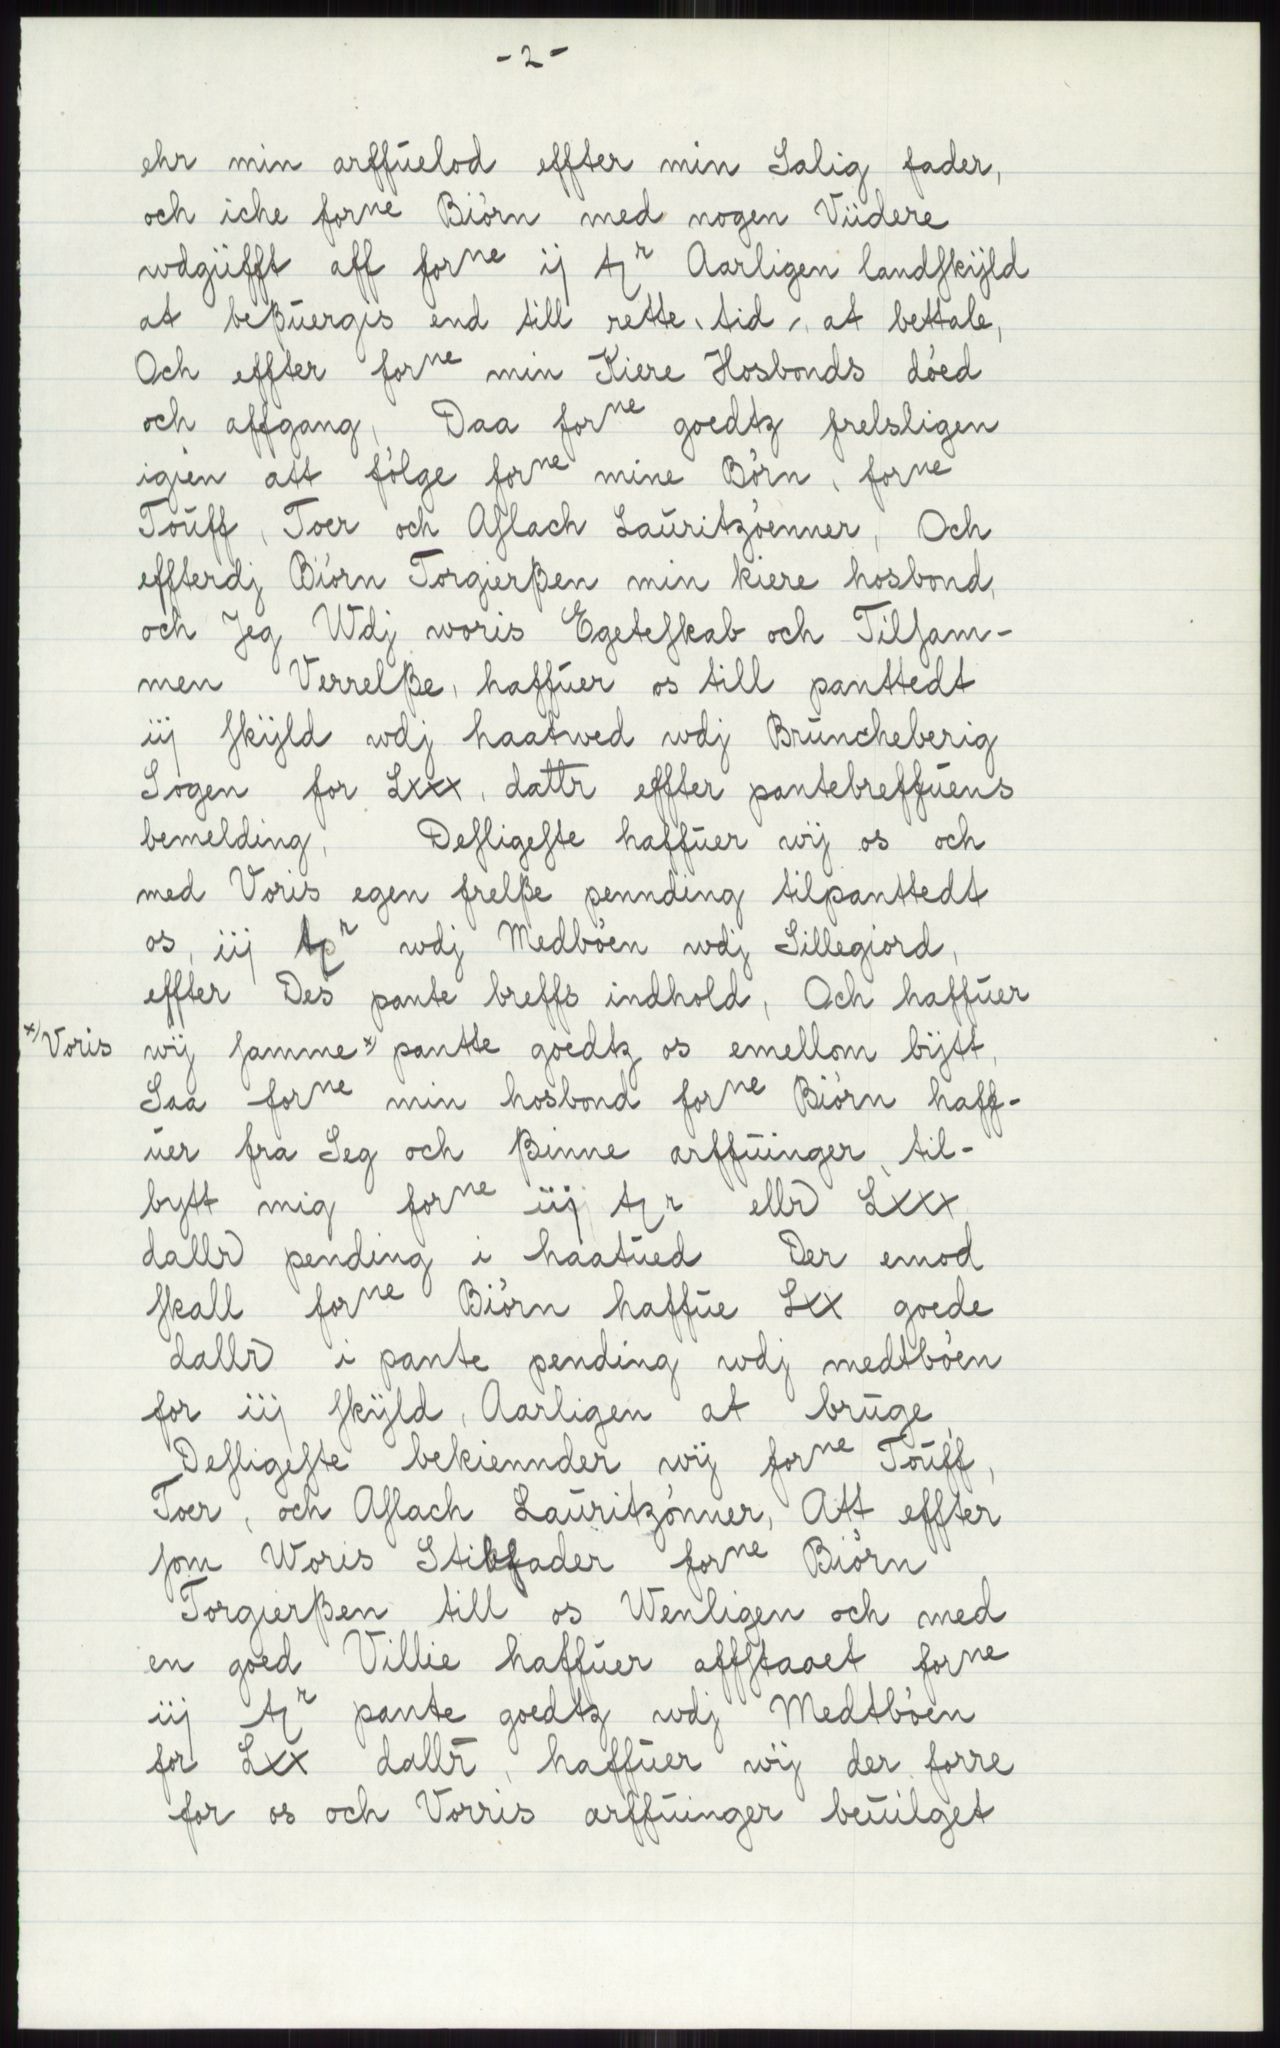 - 2 -
ehr min arffuelod effter min Salig fader,
och iche forne Biörn med nogen Viidere
wdgüfft aff forne ij tr Aarligen landskÿld
at beßuergis end till rette, tid, at bettale,
Och effter forne min Kiere Hosbonds döed
och affgang, Daa forne goedtz frelsligen
igien att fölge forne mine Börn, forne
Touff, Toer och Aslach Lauritzöenner, Och
effterdj Biörn Torgierßen min kiere hosbond,
och Jeg Wdj woris Egteskab och Tilsam-
men Verrelße, haffuer os till panttedt
iij skÿld wdj haatwed wdj Bruncheberig
Sogen for Lxxx, daltr effter pantebreffuens
bemelding, Desligeste haffuer wij os och
med Voris egen frelße pennding tilpanttedt
os, iij tr wdj Medböen wdj Sillegiord,
effter Des pante breffs indhold, Och haffuer
x) Voris wÿ samme x) pantte goedtz os emellom bÿtt,
Saa forne min hosbond forne Biörn haff-
uer fra Seg och ßinne arffuinger, til-
bytt mig forne iij tr ellr Lxxx
dallr pending i haatued Der emod
skall forne Biörn haffue Lxx goede
dallr i pante pending wdj medtböen
for iij skÿld, Aarligen at bruge,
Desligeste bekiennder wÿ forne Touff,
Toer, och Aslach Lauritzönner, Att effter
som Woris Stiffader forne Biörn
Torgierßen till os Wenligen och med
en goed Villie haffuer affstaaet forne
iij tr pante goedtz wdj Medtböen
for Lxx dallr, haffuer wÿ der forre
for os och Vorris arffuinger beuilget